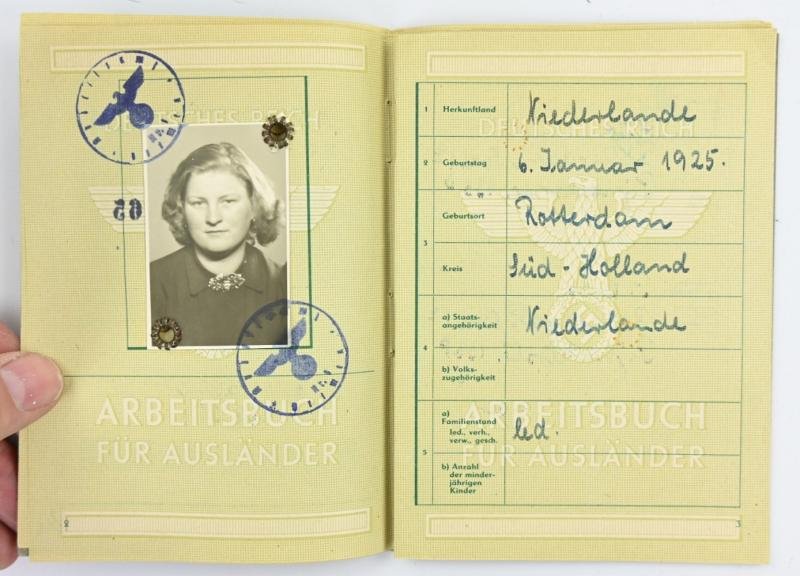 DEUTSCHES REICH
65
ARBEITSBUCH
FÜR AUSLÄNDER
2
DEUTSCHES REICH
1 Herkunftland Niederlande
2 Geburtstag 6. Januar 1925.
Geburtsort Rotterdam
3
Kreis Süd-Holland
a) Staats-
angehörigkeit Niederlande
4
b) Volks-
zugehörigkeit
a)
Familienstand
led., verh.,
verw., gesch. led.
5
b) Anzahl
der minder-
jährigen
Kinder
ARBEITSBUCH
FÜR AUSLÄNDER
3